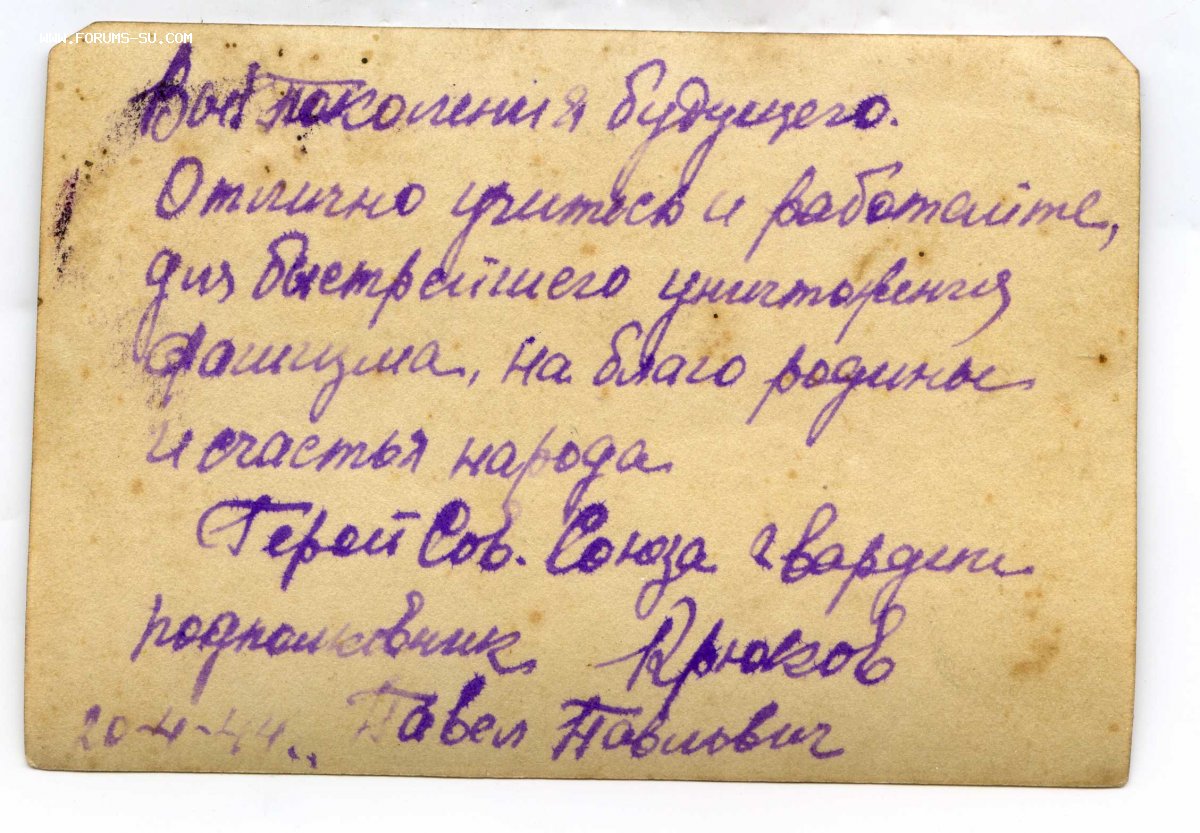 WWW.FORUMS-SU.COM
Вы поколения будущего.
Отлично учитесь и работайте,
для быстрейшего уничтожения
фашизма, на благо родины
и счастья народа
Герой Сов. Союза гвардии
подполковник Крюков
20-4-44. Павел Павлович